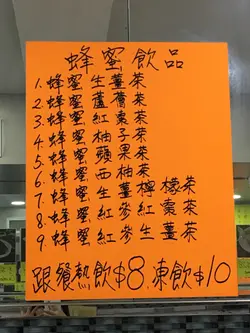 蜂蜜飲品
1.蜂蜜生薑茶
2.蜂蜜蘆薈茶
3.蜂蜜紅棗茶
4.蜂蜜柚子茶
5.蜂蜜蘋果茶
6.蜂蜜西柚茶
7.蜂蜜生薑檸檬茶
8.蜂蜜紅參紅棗茶
9.蜂蜜紅參生薑茶
跟餐熱飲$8.凍飲$10